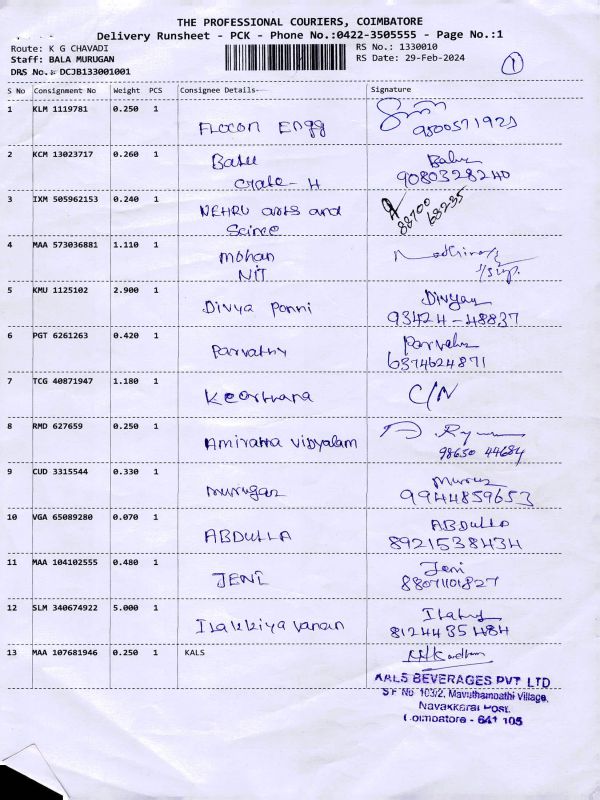 THE PROFESSIONAL COURIERS, COIMBATORE
Delivery Runsheet - PCK - Phone No.:0422-3505555 - Page No.:1
Route: K G CHAVADI
RS No.: 1330010
Staff: BALA MURUGAN
RS Date: 29-Feb-2024
DRS No.: DCJB133001001
1
S No Consignment No Weight PCS Consignee Details Signature
1 KLM 1119781 0.250 1
Flocon Engg 9500571925
2 KCM 13023717 0.260 1
Babu Babu
Crate - H 9080328240
3 IXM 505962153 0.240 1
NEHRU arts and 88700
68235
4 MAA 573036881 1.110 1
mohan
NIT
5 KMU 1125102 2.900 1
Divya Ponni Divya
93424-48837
6 PGT 6261263 0.420 1
Parvathy
6374624871
7 TCG 40871947 1.180 1
Keerthana C/N
8 RMD 627659 0.250 1
Amirtha Vidyalam
98650 44684
9 CUD 3315544 0.330 1
murugan
9944859653
10 VGA 65089280 0.070 1
ABDULLA ABDULLA
8921538434
11 MAA 104102555 0.480 1
JENI Jeni
8807101827
12 SLM 340674922 5.000 1
Ilakkiya vanan
8124435484
13 MAA 107681946 0.250 1 KALS
KALS BEVERAGES PVT LTD
S F No 103/2, Mavuthampathi Village,
Navakkarai Post.
Coimbatore - 641 105